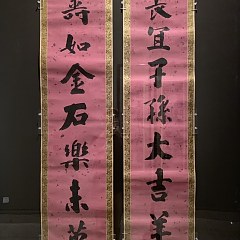 長宜子孫大吉羊
壽如金石樂未央